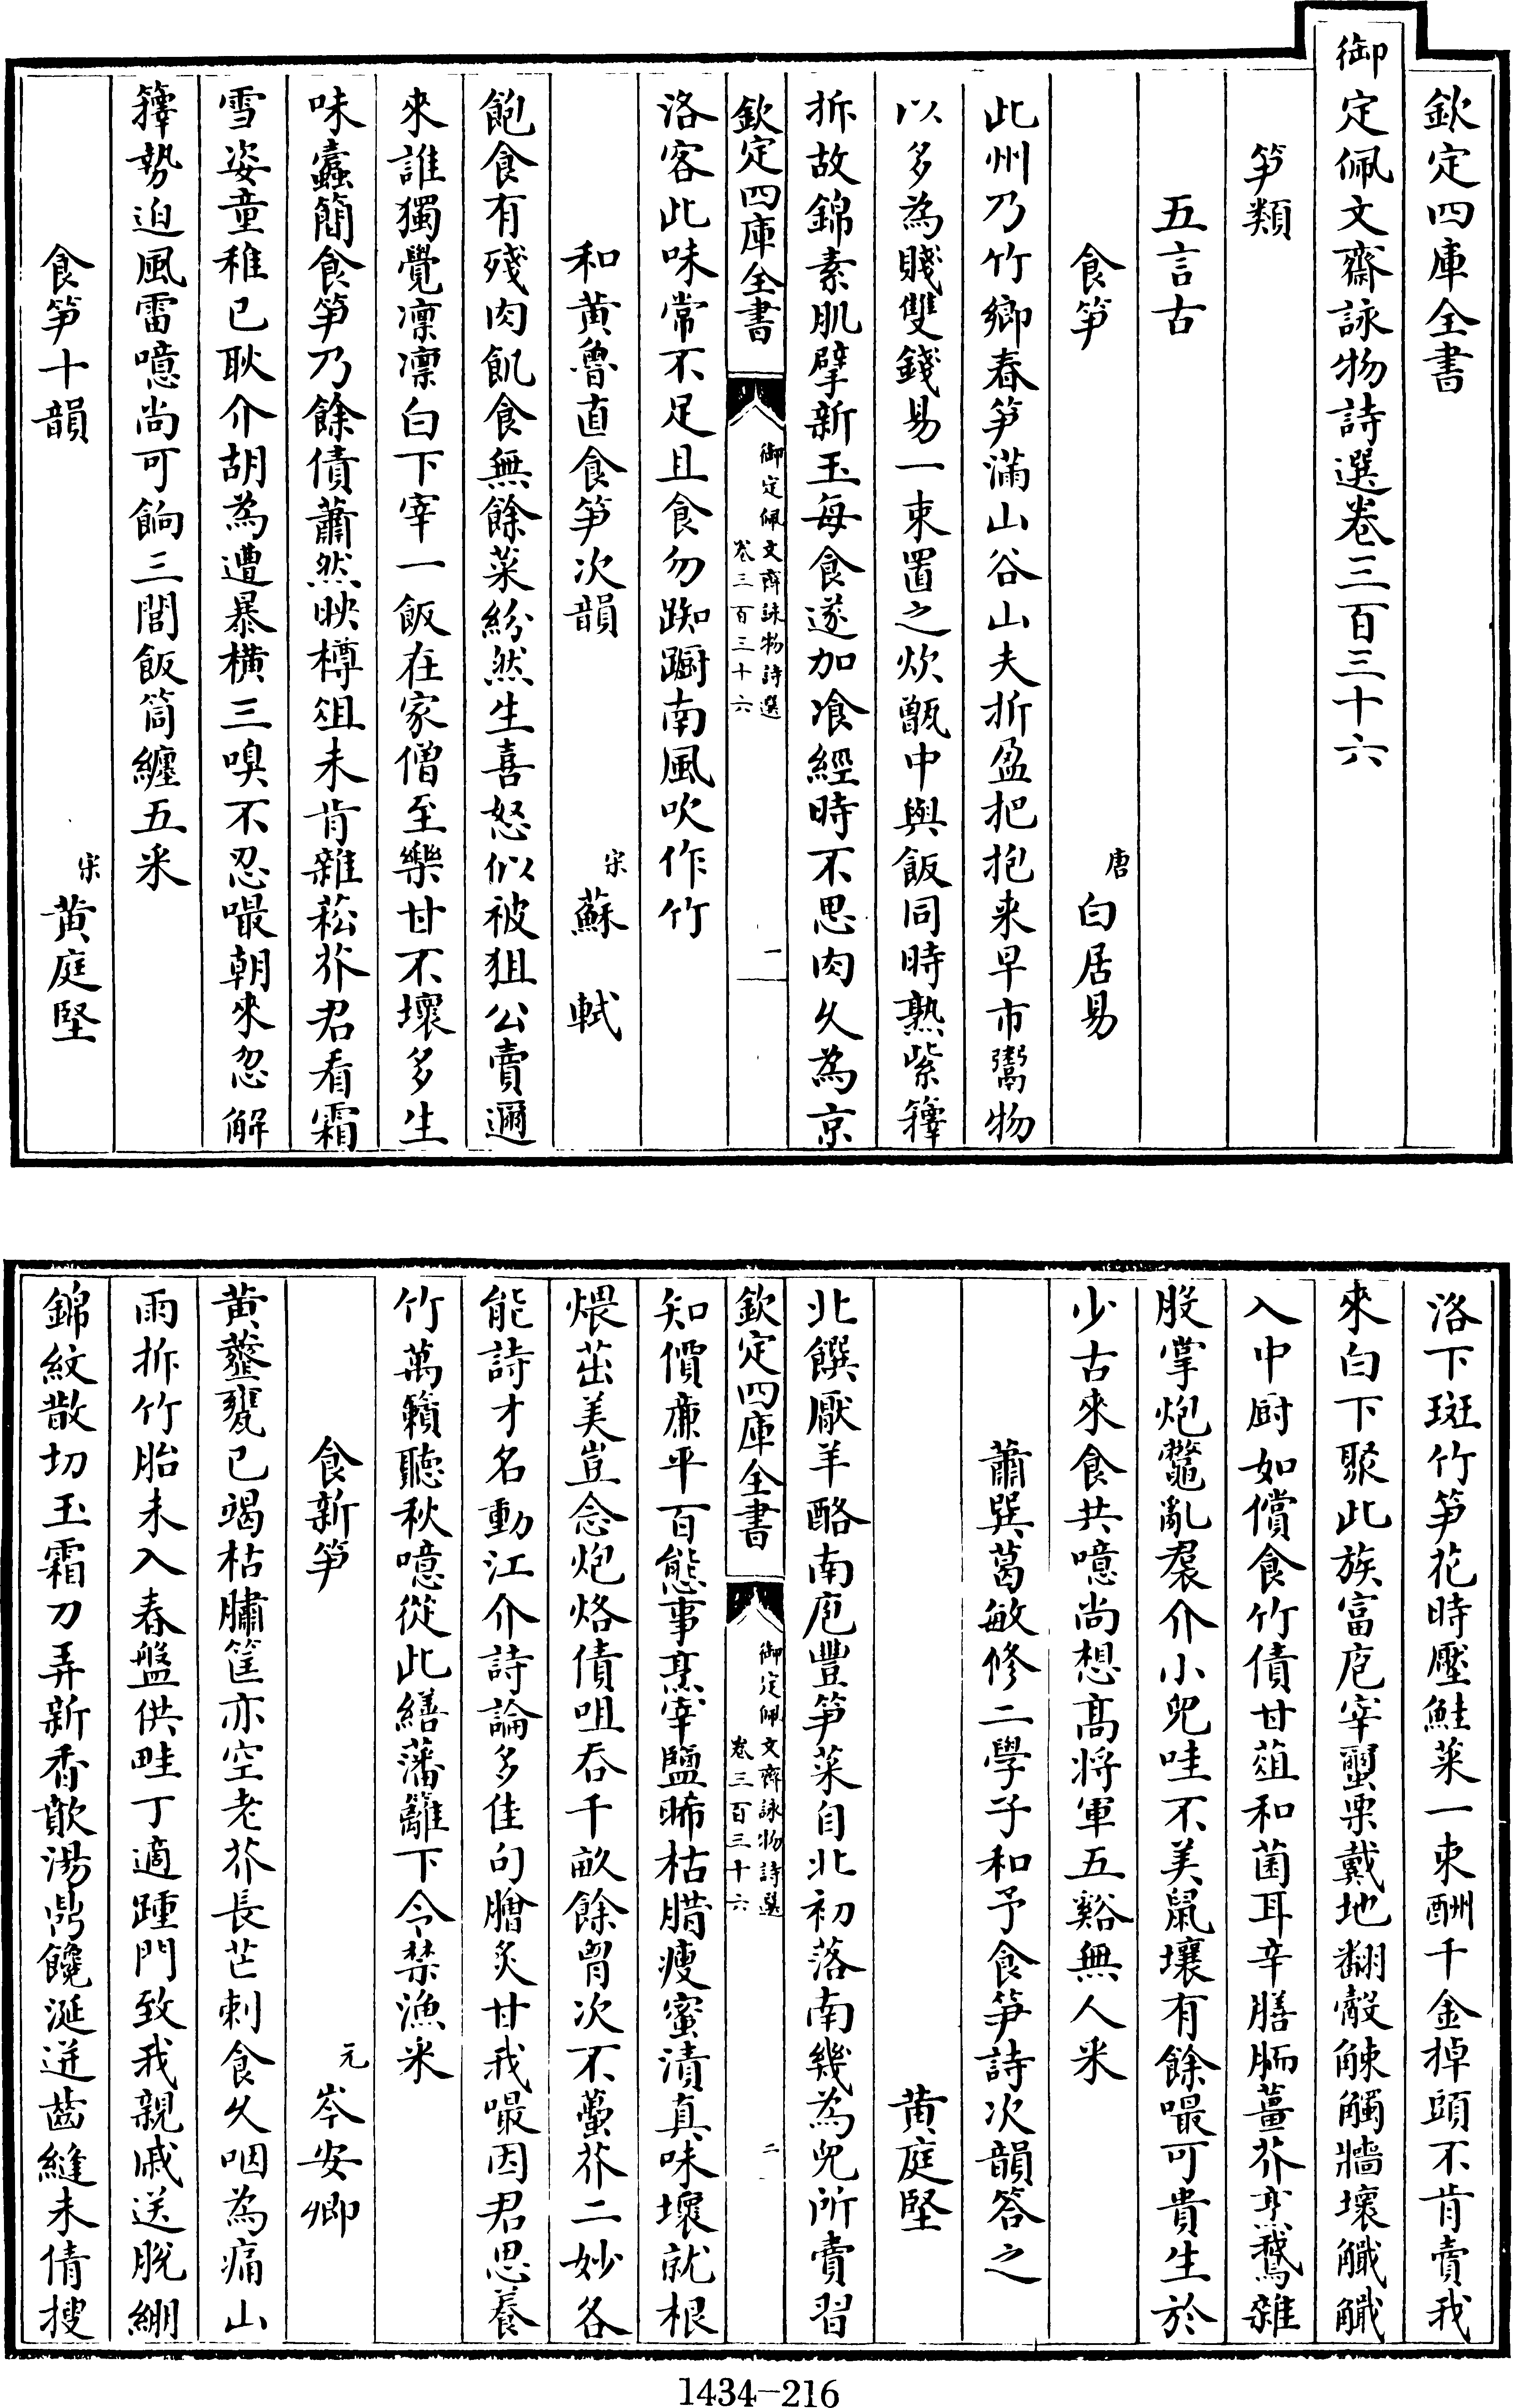 欽定四庫全書
御定佩文齋詠物詩選卷三百三十六
笋類
五言古
食笋 唐 白居易
此州乃竹鄉春笋滿山谷山夫折盈把抱来早市鬻物
以多為賤雙錢易一束置之炊甑中與飯同時熟紫籜
拆故錦素肌擘新玉每食遂加飡經時不思肉久為京
欽定四庫全書 御定佩文齋詠物詩選 卷三百三十六 一
洛客此味常不足且食勿踟蹰南風吹作竹
和黄魯直食笋次韻 宋 蘇軾
飽食有殘肉飢食無餘菜紛然生喜怒似被狙公賣邇
來誰獨覺凛凛白下宰一飯在家僧至樂甘不壞多生
味蠧簡食笋乃餘債蕭然映樽俎未肯雜菘芥君看霜
雪姿童稚已耿介胡為遭暴横三嗅不忍嘬朝來忽解
籜勢迫風雷噫尚可餉三閭飯筒纏五采
食笋十韻 宋 黄庭堅
洛下斑竹笋花時壓鮭菜一束酬千金掉頭不肯賣我
來白下聚此族富庖宰繭栗戴地翻觳觫觸牆壞觿觿
入中厨如償食竹債甘葅和菌耳辛膳胹薑芥烹鵝雜
股掌炮鼈亂裙介小兒哇不美鼠壤有餘嘬可貴生於
少古來食共噫尚想髙將軍五谿無人采
蕭巽葛敏修二學子和予食笋詩次韻答之
黄庭堅
北饌厭羊酪南庖豐笋菜自北初落南幾為兒所賣習
欽定四庫全書 御定佩文齋詠物詩選 卷三百三十六 二
知價廉平百態事烹宰鹽晞枯腊瘦蜜漬真味壞就根
煨茁美豈念炮烙債咀吞千畝餘胷次不蠆芥二妙各
能詩才名動江介詩論多佳句膾炙甘我嘬因君思養
竹萬籟聽秋噫從此繕藩籬下令禁漁采
食新笋 元 岑安卿
黄虀甕已竭枯鱐筐亦空老芥長芒刺食久咽為痛山
雨拆竹胎未入春盤供畦丁適踵門致我親戚送脫綳
錦紋散切玉霜刀弄新香歕湯鼎饞涎迸齒縫未倩搜
1434-216